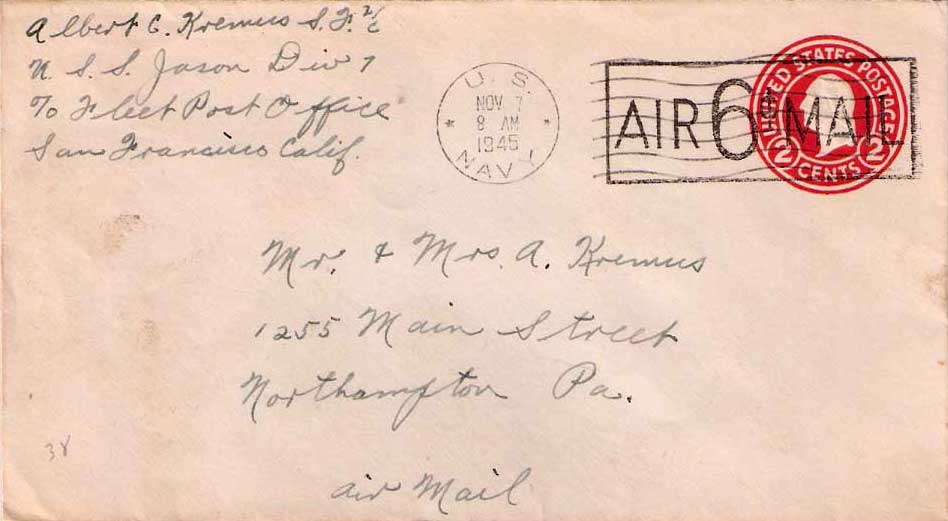 Albert C. Kremus S. F. 2/c
U. S. S. Jason Div 7
% Fleet Post Office
San Francisco Calif.
U. S.
NOV 7
8 AM
1945
NAVY
AIR 6¢ MAIL
UNITED STATES POSTAGE
2 CENTS 2
Mr. & Mrs. A. Kremus
1255 Main Street
Northampton Pa.
38
Air Mail